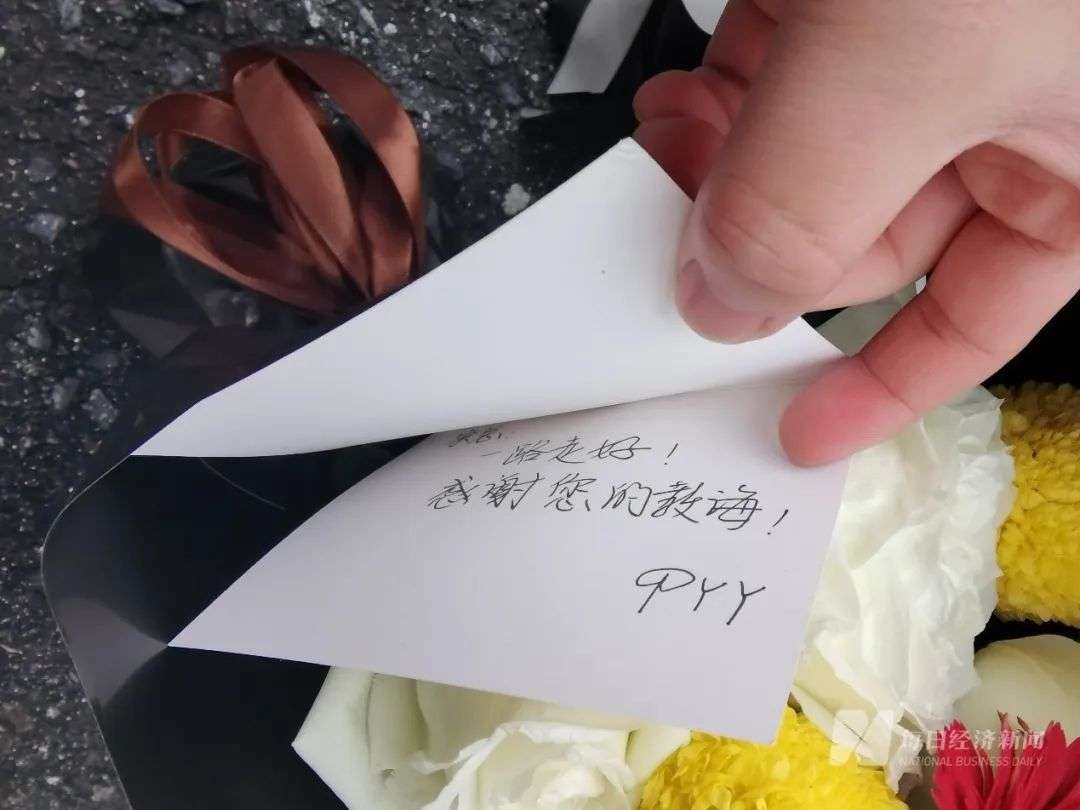 一路走好！
感谢您的教诲！
PYY
每日经济新闻
NATIONAL BUSINESS DAILY